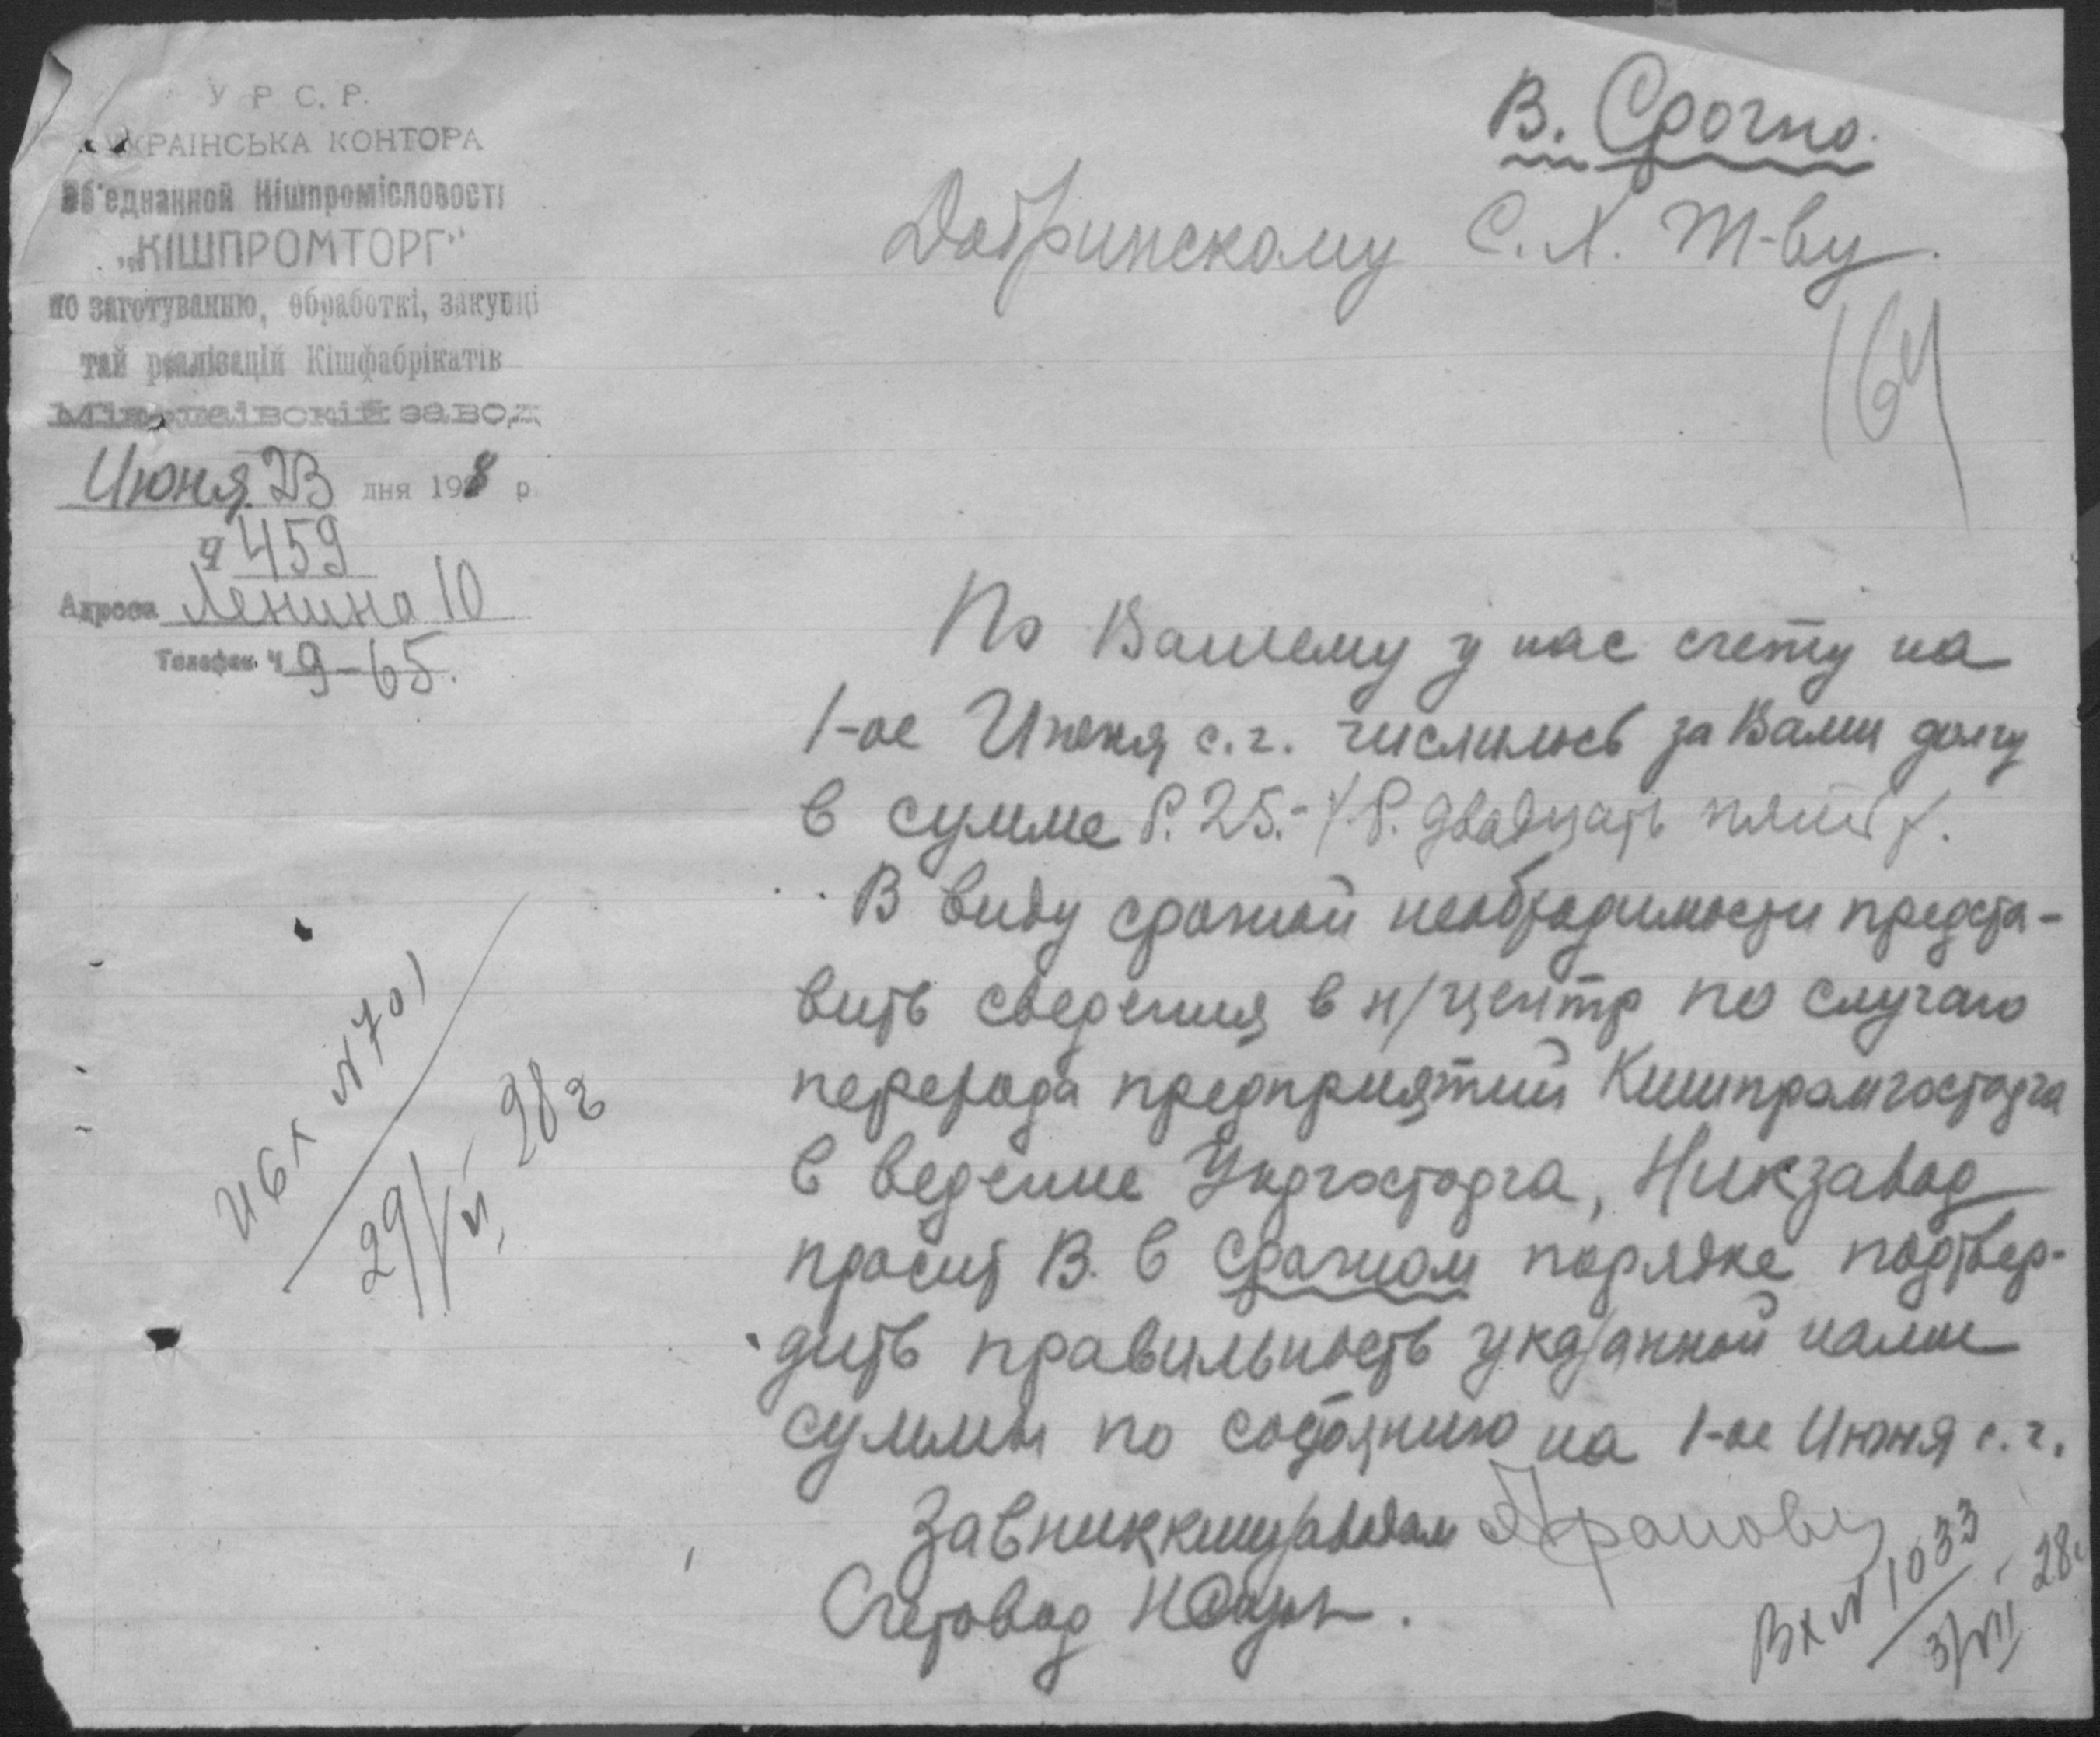 У. Р. С. Р.
УКРАІНСЬКА КОНТОРА
Об'єднанной Кішпромісловості
„КІШПРОМТОРГ"
по заготуванню, обработкі, закупці
тай реалізацій Кішфабрікатів
Міколаівскій завод
Июня 23 дня 1928 р
Ч 459
Адреса Ленина 10
Телефон Ч 9-65.
В. Срочно.
Добринскому С. Х. Т-ву.
164
По Вашему у нас счету на
1-ое Июня с.г. числилось за Вами долгу
в сумме Р. 25.- /Р. двадцать пять/.
В виду срочной необходимости предста-
вить сведения в н/центр по случаю
перехода предприятий Кишпромгосторга
в ведение Укргосторга, Никзавод
просит В. в срочном порядке подтвер-
дить правильность указанной нами
суммы по состоянию на 1-ое Июня с.г.
Завниккишзаводом
Счетовод
И6х N701
29/VI - 28 г
Вх N 1033
3/VII - 28 г